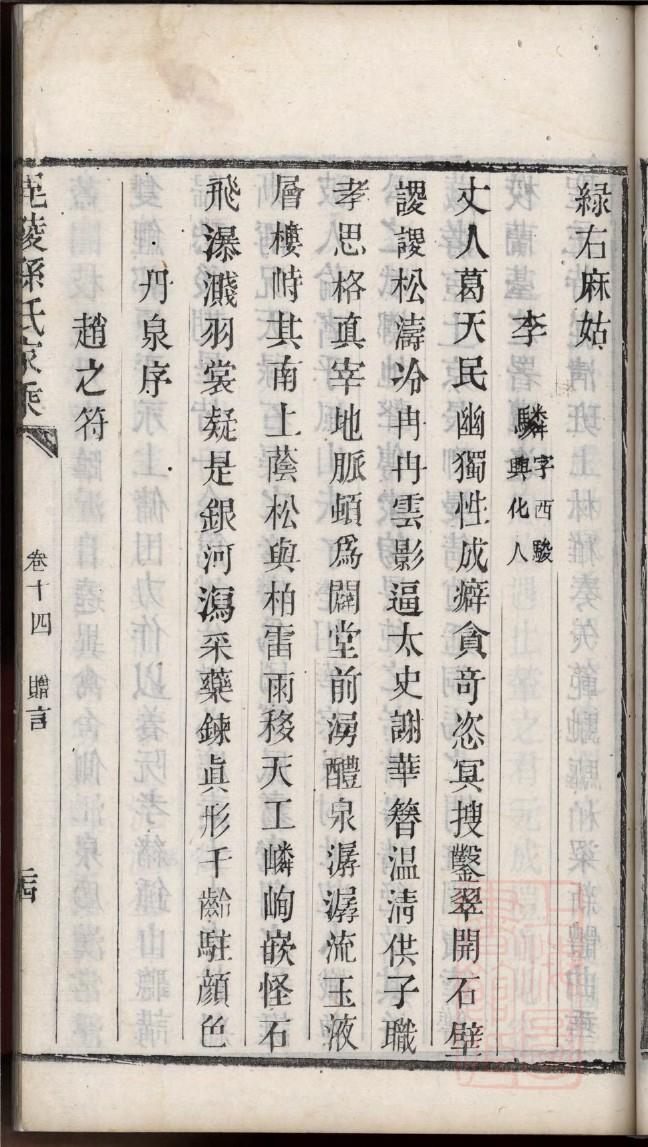 緑右麻姑
李驎字西駿興化人
丈人葛天民幽獨性成癖貪奇恣冥搜鑿翠開石壁
謖謖松濤冷冉冉雲影逼太史謝華簪温清供子職
孝思格眞宰地脈頓爲闢堂前湧醴泉潺潺流玉液
層樓峙其南上蔭松與柏雷雨移天工嶙峋嵌怪石
飛瀑濺羽裳疑是銀河瀉采藥鍊眞形千齡駐顏色
丹泉序
趙之符
毘陵孫氏家乘
卷十四
贈言